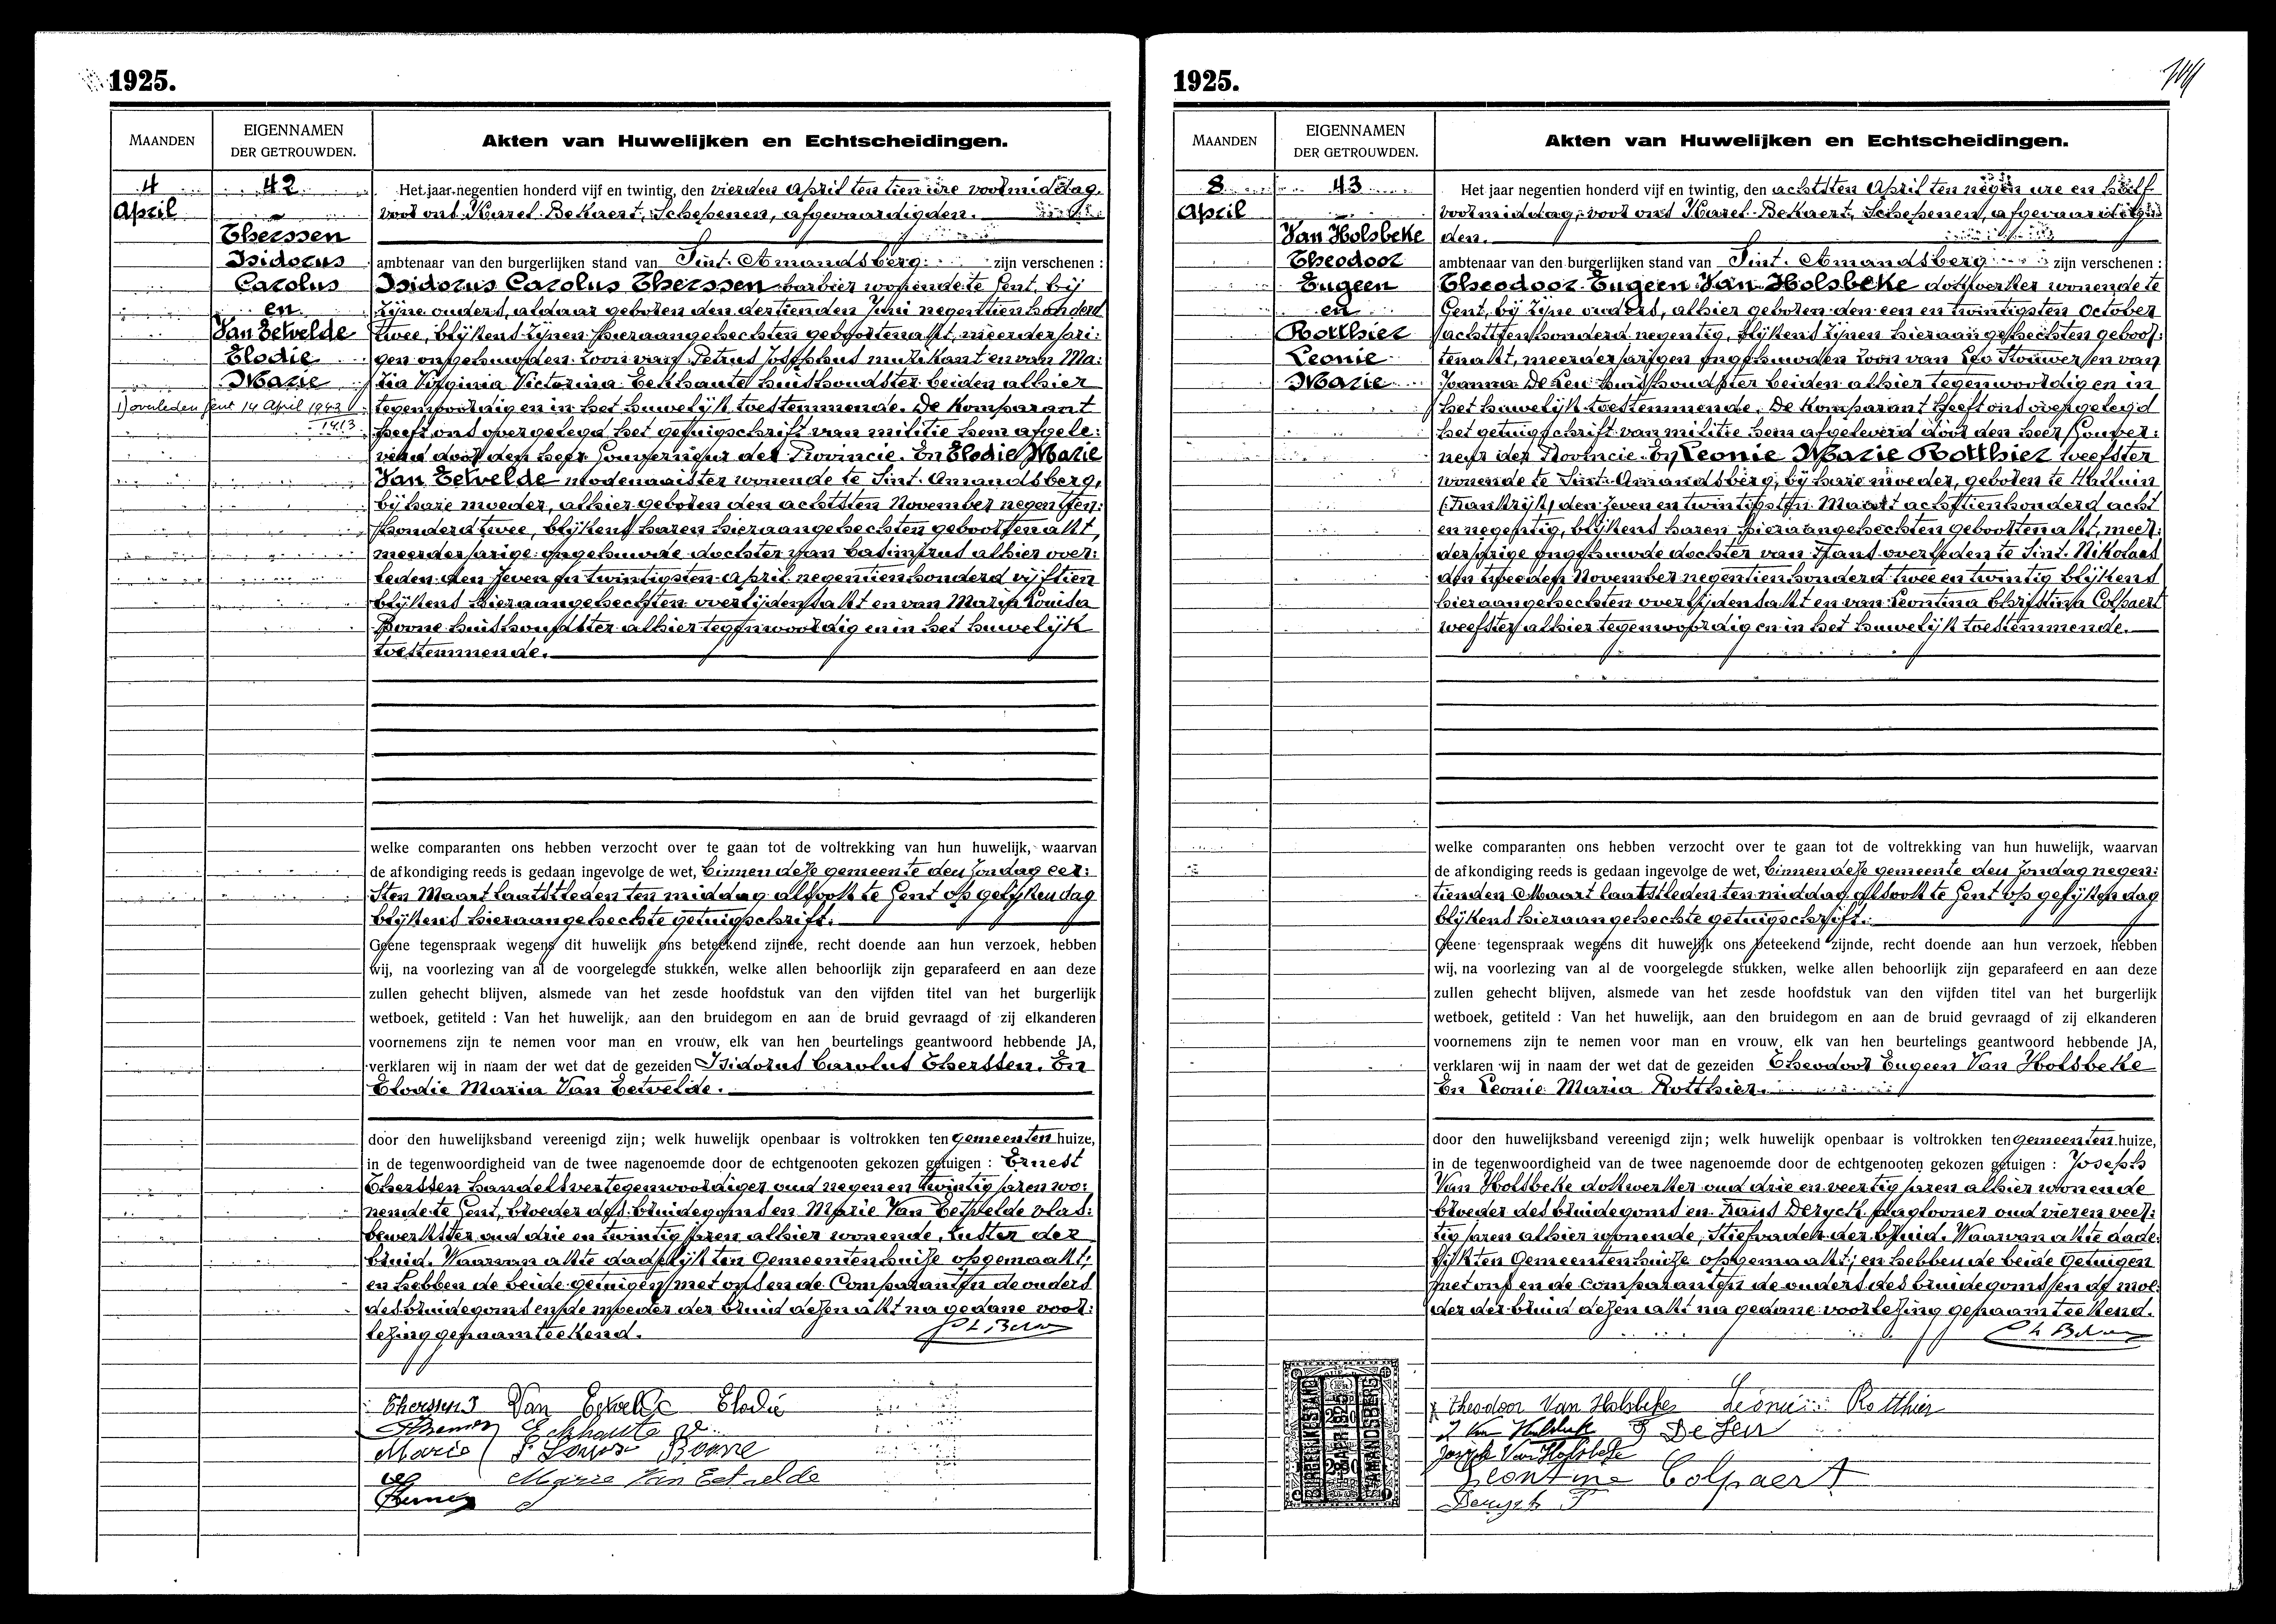 1925.
MAANDEN
EIGENNAMEN
DER GETROUWDEN.
Akten van Huwelijken en Echtscheidingen.
4
April
42
Therssen
Isidorus
Carolus
en
Van Eetvelde
Elodie
Marie
1) overleden Gent 14 April 1943
Het jaar negentien honderd vijf en twintig, den vierden April ten tien ure voormiddag
voor ons Karel Bekaert, Schepenen, afgevaardigden.
ambtenaar van den burgerlijken stand van Sint. Amandsberg zijn verschenen :
Isidorus Carolus Therssen barbier wonende te Gent, bij
zijne ouders, aldaar geboren den dertienden Juni negentienhonderd
twee, blijkens zijnen hieraangehechten geboortenakt, meerderjari:
gen ongehuwden zoon van Petrus Josephus muzikant en van Ma:
ria Virginia Victorina Eekhaute huishoudster beiden alhier
tegenwoordig en in het huwelijk toestemmende. De Komparant
heeft ons overgelegd het getuigschrift van militie hem afgele:
verd door den heer Gouverneur der Provincie. En Elodie Marie
Van Eetvelde modenaaister wonende te Sint. Amandsberg,
bij hare moeder, alhier geboren den achtsten November negentien:
honderd twee, blijkens haren hieraangehechten geboortenakt,
meerderjarige ongehuwde dochter van Casimirus alhier over:
leden den zeven en twintigsten April negentienhonderd vijftien
blijkens hieraangehechten overlijdensakt en van Maria Louisa
Boone huishoudster alhier tegenwoordig en in het huwelijk
toestemmende.
welke comparanten ons hebben verzocht over te gaan tot de voltrekking van hun huwelijk, waarvan
de afkondiging reeds is gedaan ingevolge de wet, binnen deze gemeente den Zondag eer:
sten Maart laatstleden ten middag alsook te Gent op gelijken dag
blijkens hieraangehechte getuigschrift.
Geene tegenspraak wegens dit huwelijk ons beteekend zijnde, recht doende aan hun verzoek, hebben
wij, na voorlezing van al de voorgelegde stukken, welke allen behoorlijk zijn geparafeerd en aan deze
zullen gehecht blijven, alsmede van het zesde hoofdstuk van den vijfden titel van het burgerlijk
wetboek, getiteld : Van het huwelijk, aan den bruidegom en aan de bruid gevraagd of zij elkanderen
voornemens zijn te nemen voor man en vrouw, elk van hen beurtelings geantwoord hebbende JA,
verklaren wij in naam der wet dat de gezeiden Isidorus Carolus Therssen. En
Elodie Maria Van Eetvelde.
door den huwelijksband vereenigd zijn; welk huwelijk openbaar is voltrokken ten gemeenten huize,
in de tegenwoordigheid van de twee nagenoemde door de echtgenooten gekozen getuigen : Ernest
Therssen handelsvertegenwoordiger oud negen en twintig jaren wo:
nende te Gent, broeder des bruidegoms en Marie Van Eetvelde vlas:
bewerkster oud drie en twintig jaren alhier wonende, zuster der
bruid. Waarvan akte dadelijk ten Gemeentenhuize opgemaakt;
en hebben de beide getuigen met ons en de Comparanten de ouders
des bruidegoms en de moeder der bruid dezen akt na gedane voor:
lezing genaamteekend.
Therssens Van Eetvelde Elodie
Eekhaute
Marie Louise Boone
Marie Van Eetvelde
1925.
MAANDEN
EIGENNAMEN
DER GETROUWDEN.
Akten van Huwelijken en Echtscheidingen.
8
April
43
Van Holsbeke
Theodoor
Eugeen
en
Rotthier
Leonie
Marie
Het jaar negentien honderd vijf en twintig, den achtsten April ten negen ure en half
voormiddag, voor ons Karel Bekaert, Schepenen, afgevaardig
den.
ambtenaar van den burgerlijken stand van Sint. Amandsberg zijn verschenen :
Theodoor Eugeen Van Holsbeke dokwerker wonende te
Gent, bij zijne ouders, alhier geboren den een en twintigsten October
achttienhonderd negentig, blijkens zijnen hieraangehechten geboor:
tenakt, meerderjarigen ongehuwden zoon van Leo Stouwer en van
Joanna De Leu huishoudster beiden alhier tegenwoordig en in
het huwelijk toestemmende. De Komparant heeft ons overgelegd
het getuigschrift van militie hem afgeleverd door den heer Gouver:
neur der Provincie. En Leonie Marie Rotthier weefster
wonende te Sint. Amandsberg, bij hare moeder, geboren te Halluin
(Frankrijk) den zeven en twintigsten Maart achttienhonderd acht
en negentig, blijkens haren hieraangehechten geboortenakt, meer:
derjarige ongehuwde dochter van Frans overleden te Sint. Nikolaas
den tweeden November negentienhonderd twee en twintig blijkens
hieraangehechten overlijdensakt en van Leontina Christina Colpaert
weefster alhier tegenwoordig en in het huwelijk toestemmende.
welke comparanten ons hebben verzocht over te gaan tot de voltrekking van hun huwelijk, waarvan
de afkondiging reeds is gedaan ingevolge de wet, binnen deze gemeente den Zondag negen:
tienden Maart laatstleden ten middag alsook te Gent op gelijken dag
blijkens hieraangehechte getuigschrift.
Geene tegenspraak wegens dit huwelijk ons beteekend zijnde, recht doende aan hun verzoek, hebben
wij, na voorlezing van al de voorgelegde stukken, welke allen behoorlijk zijn geparafeerd en aan deze
zullen gehecht blijven, alsmede van het zesde hoofdstuk van den vijfden titel van het burgerlijk
wetboek, getiteld : Van het huwelijk, aan den bruidegom en aan de bruid gevraagd of zij elkanderen
voornemens zijn te nemen voor man en vrouw, elk van hen beurtelings geantwoord hebbende JA,
verklaren wij in naam der wet dat de gezeiden Theodoor Eugeen Van Holsbeke
En Leonie Maria Rotthier.
door den huwelijksband vereenigd zijn; welk huwelijk openbaar is voltrokken ten gemeenten huize,
in de tegenwoordigheid van de twee nagenoemde door de echtgenooten gekozen getuigen : Joseph
Van Holsbeke dokwerker oud drie en veertig jaren alhier wonende
broeder des bruidegoms en Frans Deryck daglooner oud vier en veer:
tig jaren alhier wonende, Stiefvader der bruid. Waarvan akte dade:
lijk ten Gemeentenhuize opgemaakt; en hebben de beide Getuigen
met ons en de comparanten de ouders des bruidegoms en de moe:
der der bruid dezen akt na gedane voorlezing genaamteekend.
Theodoor Van Holsbeke Leonie Rotthier
De Leu
Joseph Van Holsbeke
Leontine Colpaert